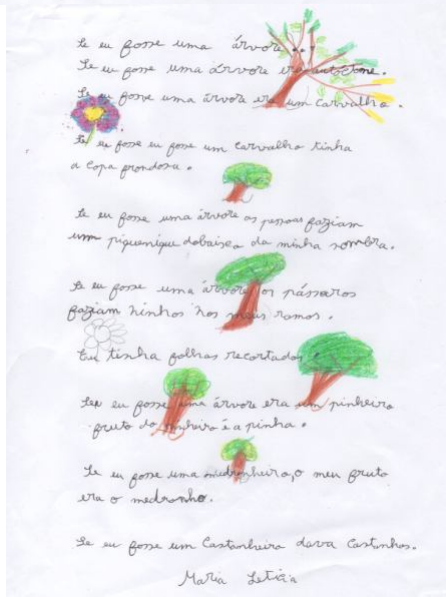 Se eu fosse uma árvore...
Se eu fosse uma árvore era autóctone.
Se eu fosse uma árvore era um carvalho.
Se eu fosse eu fosse um carvalho tinha
a copa frondosa.
Se eu fosse uma árvore as pessoas faziam
um piquenique debaixo da minha sombra.
Se eu fosse uma árvore os pássaros
faziam ninhos nos meus ramos.
Eu tinha folhas recortadas.
Se eu fosse uma árvore era um pinheiro
fruto do pinheiro é a pinha.
Se eu fosse uma medronheira, o meu fruto
era o medronho.
Se eu fosse um Castanheiro dava Castanhas.
Maria Letícia